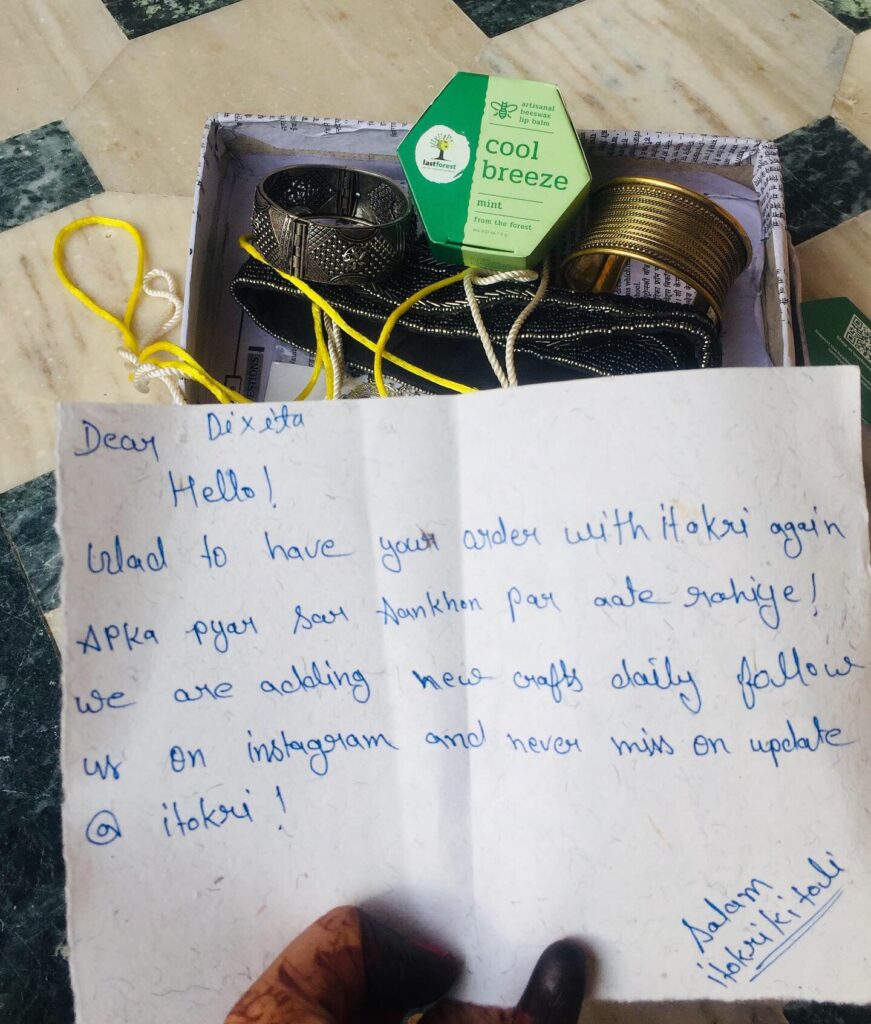 artisanal
beeswax
lip balm
lastforest
cool
breeze
mint
from the forest
Dear Dixita
Hello!
Glad to have your order with itokri again
Apka pyar sar Aankhon par aate rahiye!
we are adding new crafts daily follow
us on instagram and never miss on update
@ itokri!
Salam
itokri ki toli